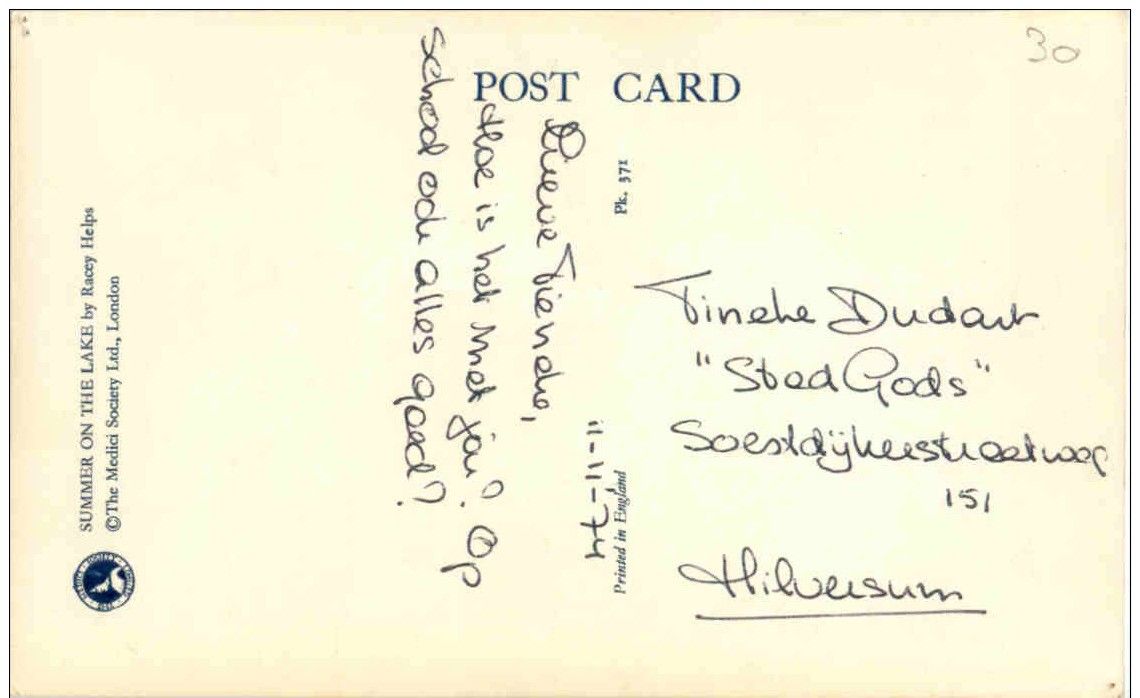 POST CARD
30
11-11-74
Lieve Tieneke,
Hoe is het met jou? Op
school ook alles goed?
Tineke Dudart
"Stad Gods"
Soestdijkerstraatweg
151
Hilversum
Pk. 371
Printed in England
SUMMER ON THE LAKE by Racey Helps
©The Medici Society Ltd., London